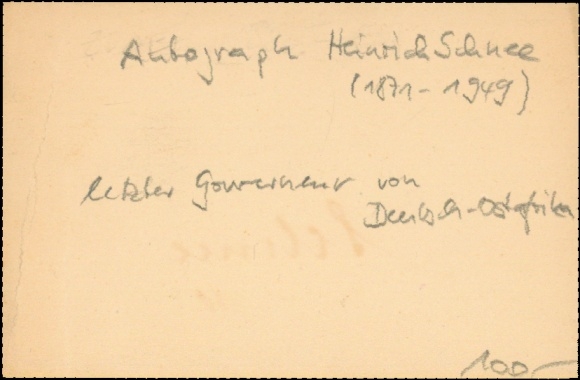 Autograph Heinrich Schnee
(1871 - 1949)
letzter Gouverneur von
Deutsch-Ostafrika
100,-